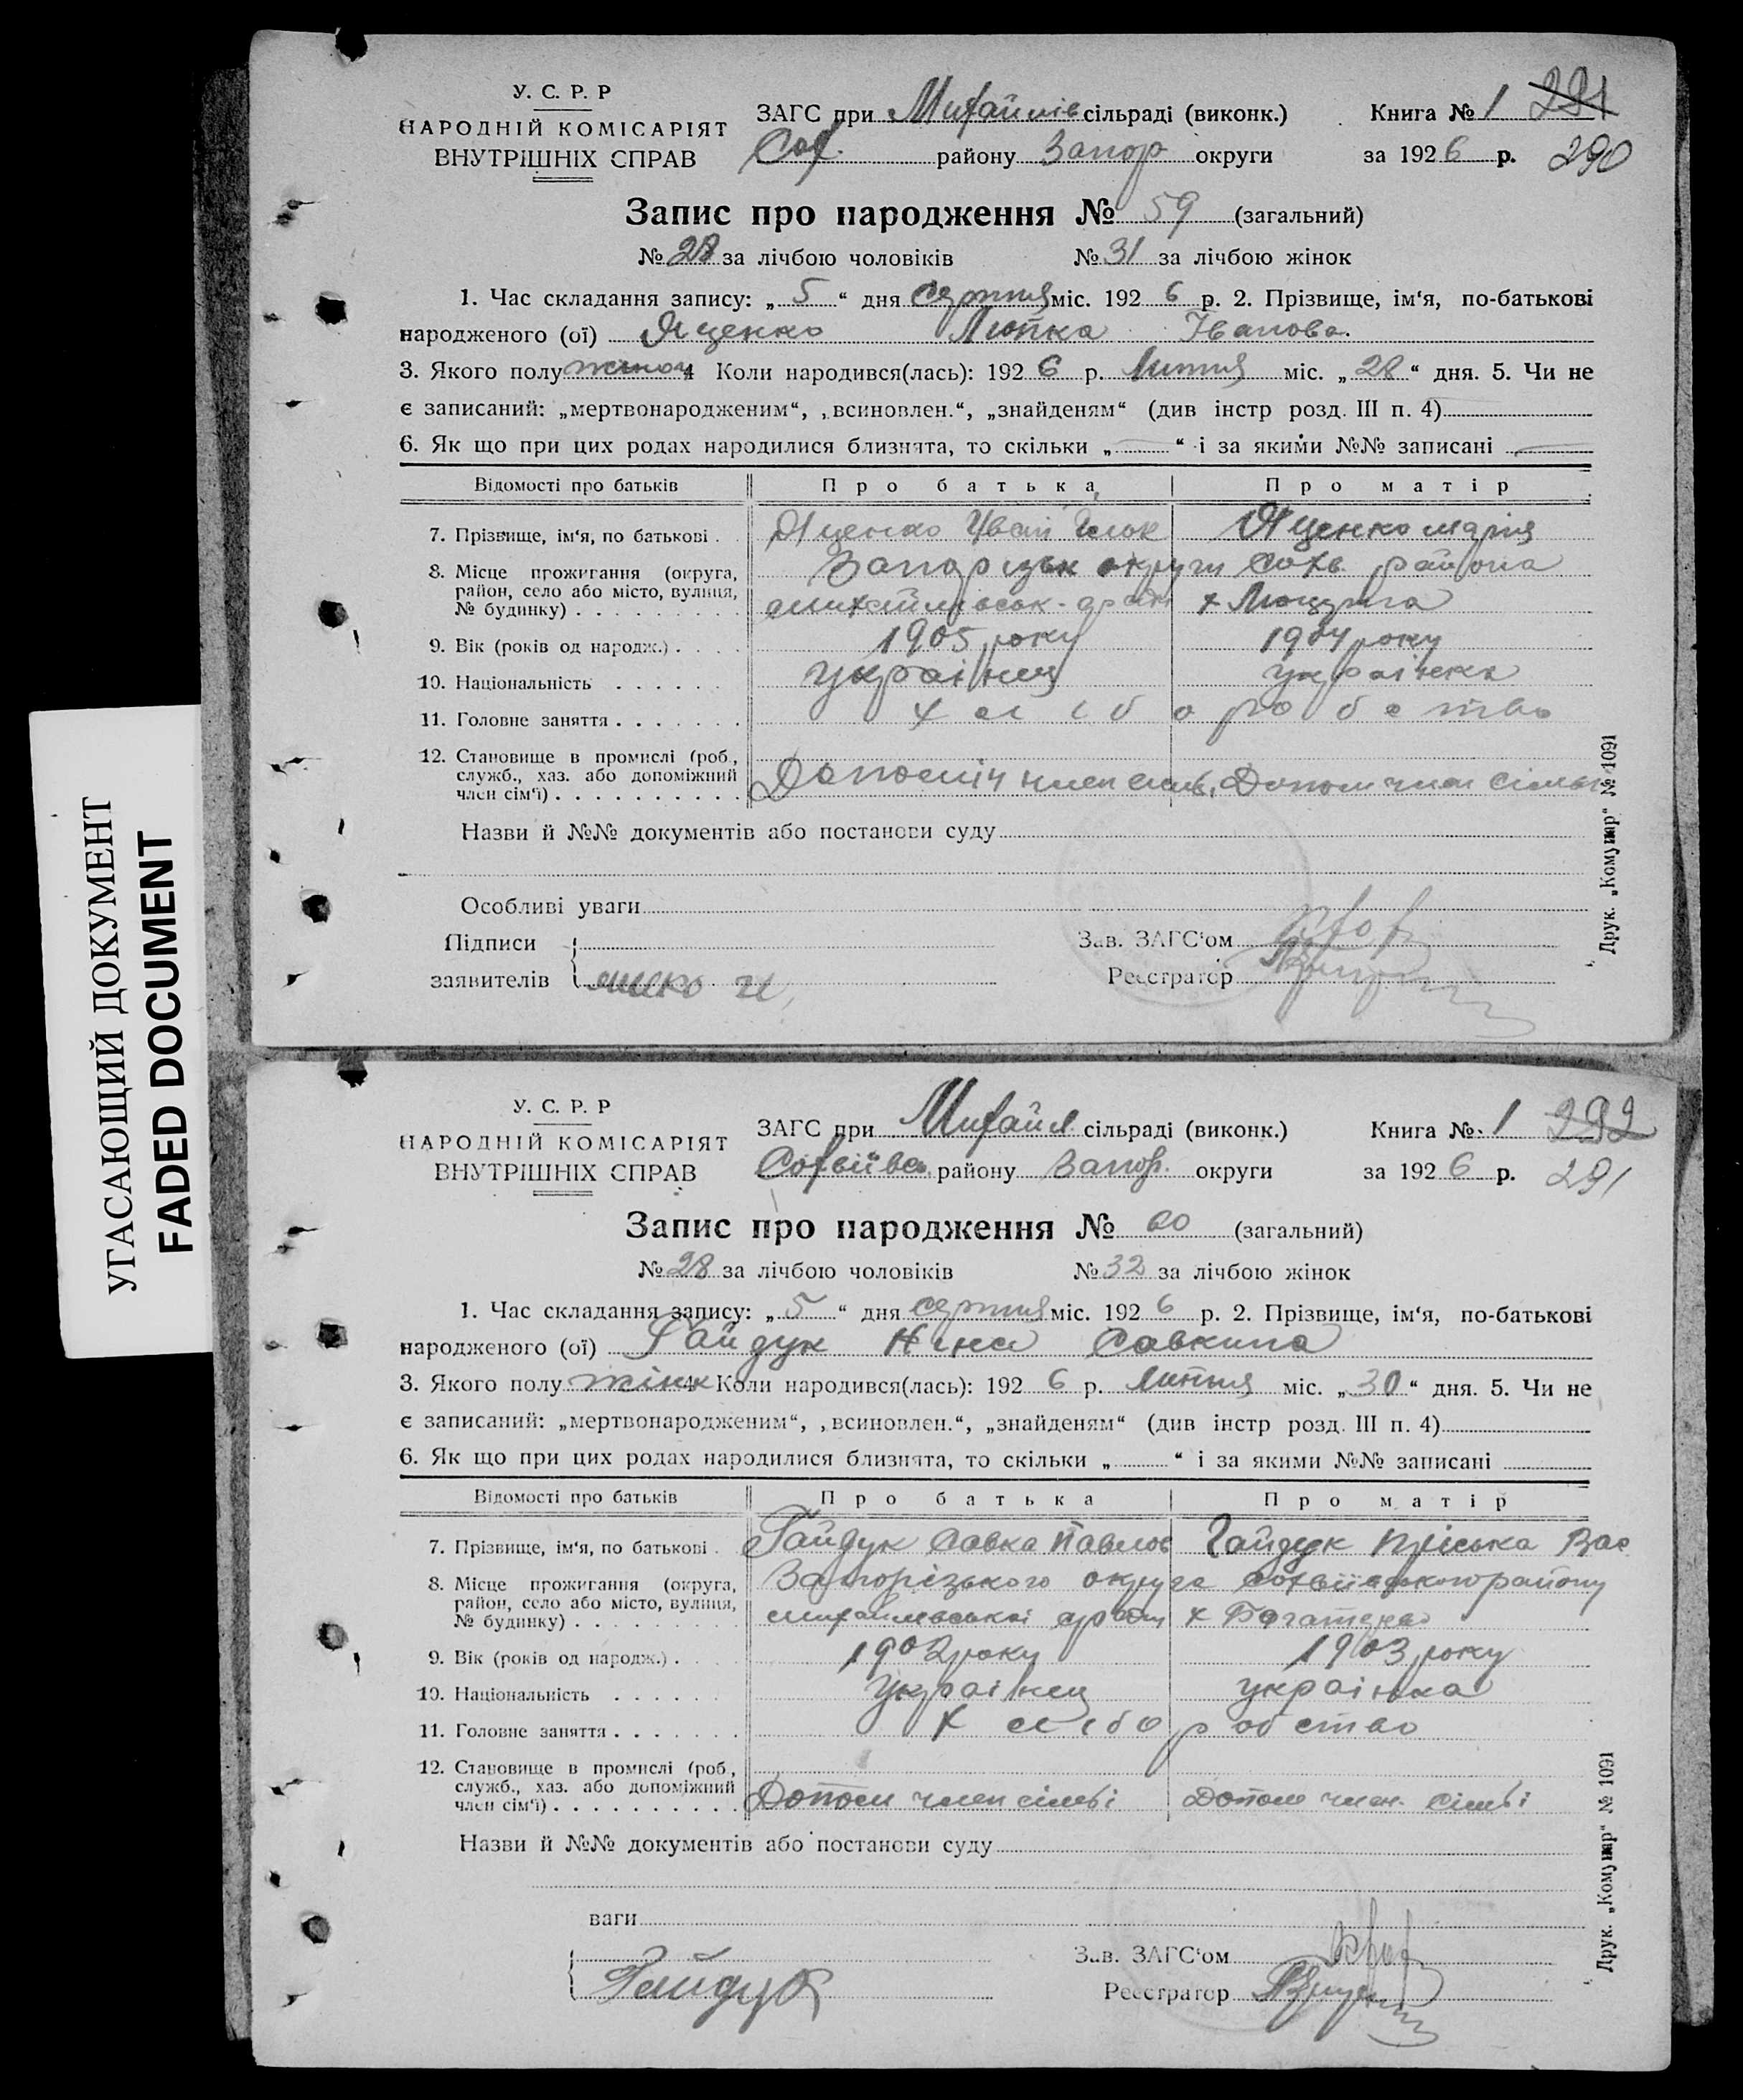 УГАСАЮЩИЙ ДОКУМЕНТ
FADED DOCUMENT
У. С. Р. Р
НАРОДНІЙ КОМІСАРІЯТ
ВНУТРІШНІХ СПРАВ
ЗАГС при Михайлів сільраді (виконк.) Книга № 1 291
Соф. району Запор округи за 1926 р. 290
Запис про народження № 59 (загальний)
№ 28 за лічбою чоловіків № 31 за лічбою жінок
1. Час складання запису: „ 5 “ дня серпня міс. 192 6 р. 2. Прізвище, ім‘я, по-батькові
народженого (ої) Яценко Любка Іванова.
3. Якого полу жіноч 4 Коли народився(лась): 192 6 р. Липня міс. „ 28 “ дня. 5. Чи не
є записаний: „мертвонародженим“, „всиновлен.“, „знайденям“ (див інстр розд. III п. 4)
6. Як що при цих родах народилися близнята, то скільки „ “ і за якими №№ записані
Відомості про батьків Про батька Про матір
7. Прізвище, ім‘я, по батькові . Яценко Іван Яценко Марія
8. Місце проживання (округа, район, село або місто, вулиця, № будинку) Запорізьк округи Софв. района
михайлівськ. с/ради х
9. Вік (років од народж.) 1905 року 1904 року
10. Національність українец українка
11. Головне заняття хлiборобство
12. Становище в промислі (роб., служб., хаз. або допоміжний член сім‘ї) Допоміч член сімь. Допом член сімьі
Назви й №№ документів або постанови суду
Особливі уваги
Підписи
заявителів
Зав. ЗАГС‘ом
Реєстратор
Друк. „Комунар“ № 1091
У. С. Р. Р
НАРОДНІЙ КОМІСАРІЯТ
ВНУТРІШНІХ СПРАВ
ЗАГС при Михайл. сільраді (виконк.) Книга № 1 292
Софіївсь. району Запор. округи за 1926 р. 291
Запис про народження № 60 (загальний)
№ 28 за лічбою чоловіків № 32 за лічбою жінок
1. Час складання запису: „ 5 “ дня серпня міс. 192 6 р. 2. Прізвище, ім‘я, по-батькові
народженого (ої) Гайдук Нина Савкина
3. Якого полу жінк 4 Коли народився(лась): 192 6 р. Липня міс. „ 30 “ дня. 5. Чи не
є записаний: „мертвонародженим“, „всиновлен.“, „знайденям“ (див інстр розд. III п. 4)
6. Як що при цих родах народилися близнята, то скільки „ “ і за якими №№ записані
Відомості про батьків Про батька Про матір
7. Прізвище, ім‘я, по батькові . Гайдук Савка Павлов Гайдук Пріська Вас
8. Місце проживання (округа, район, село або місто, вулиця, № будинку) Запорізького округа Софіївського району
михайлівськоі с/ради х
9. Вік (років од народж.) 1902 року 1903 року
10. Національність українец українка
11. Головне заняття хлiборобство
12. Становище в промислі (роб., служб., хаз. або допоміжний член сім‘ї) Допом член сімьі Допом член. сімьі
Назви й №№ документів або постанови суду
ваги
Гайдук
Зав. ЗАГС‘ом
Реєстратор
Друк. „Комунар“ № 1091